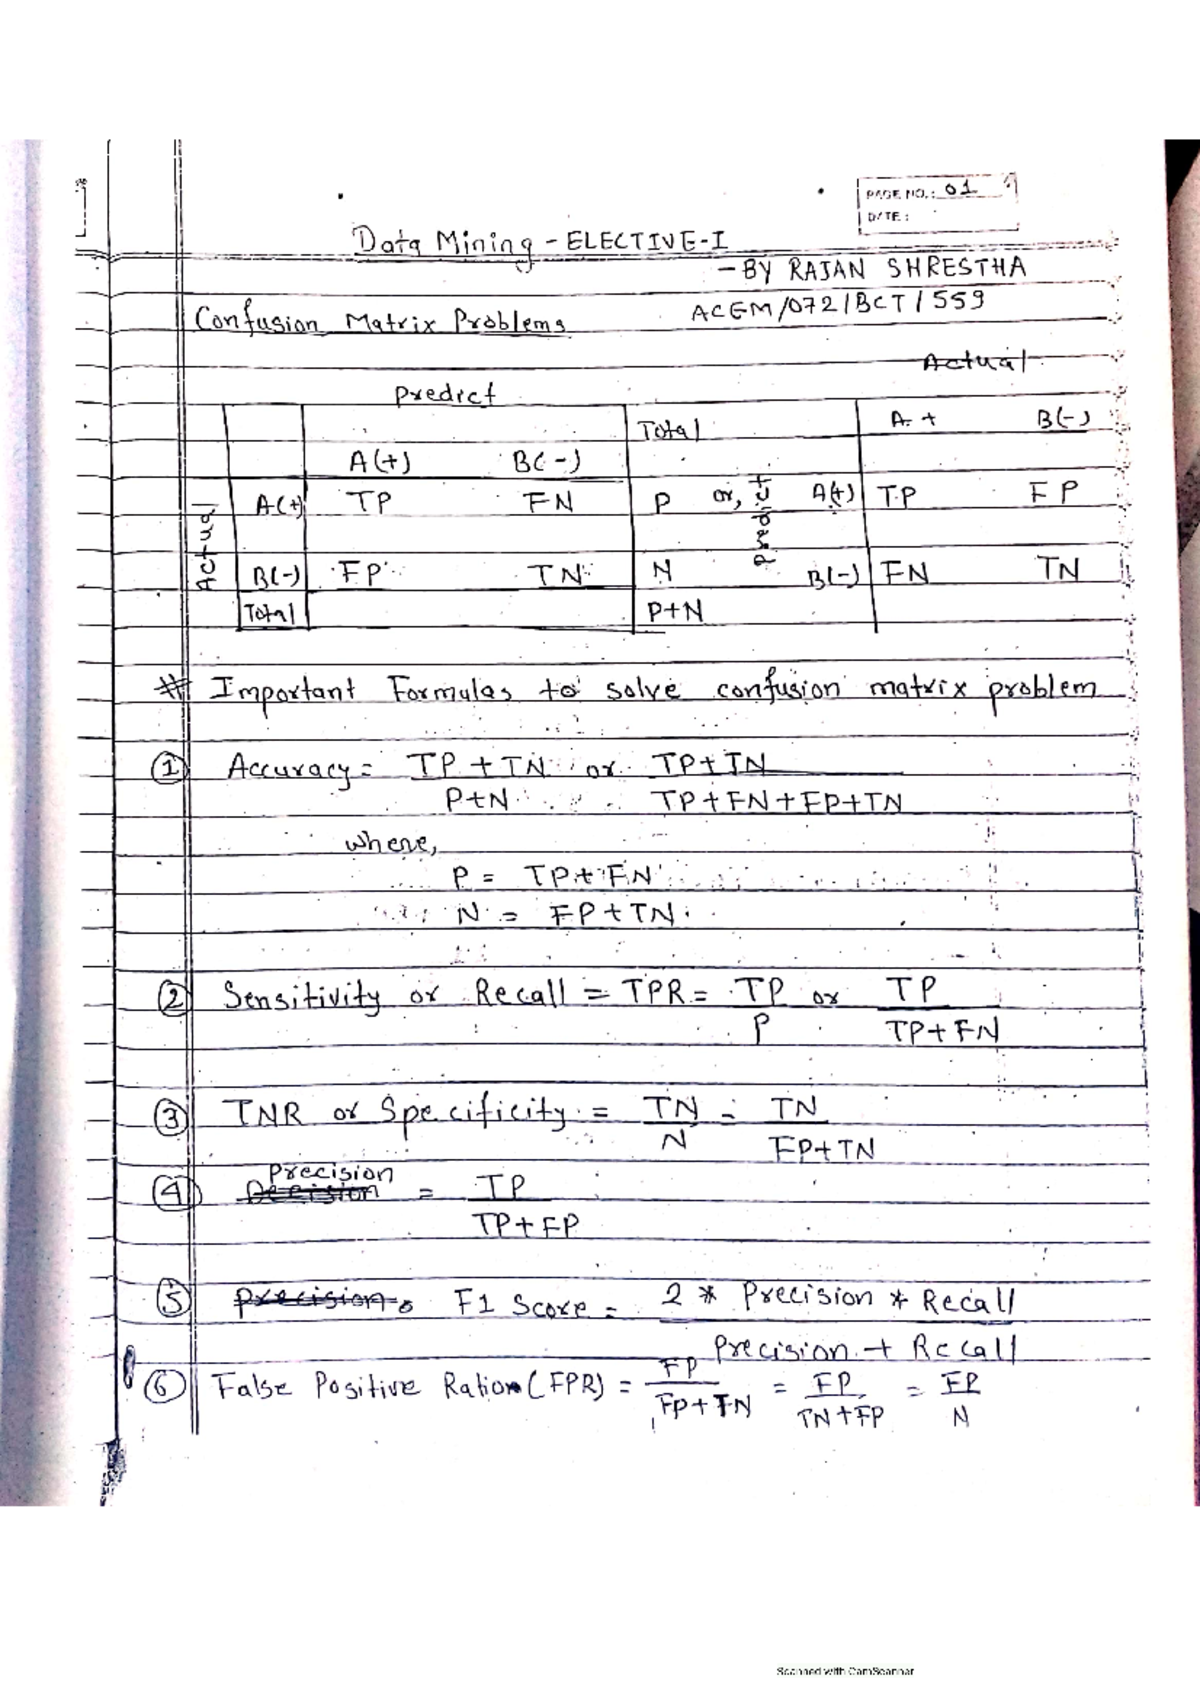 PAGE NO.: 01
DATE:
Data Mining - ELECTIVE-I
- BY RAJAN SHRESTHA
ACEM/072/BCT/559
Confusion Matrix Problems
Actual
Predict
Total A. + B(-)
A(+) B(-)
Actual A(+) TP FN P or, predict A(+) TP FP
B(-) FP TN N B(-) FN TN
Total P+N
# Important Formulas to solve confusion matrix problem
① Accuracy = TP + TN or TP+TN
P+N TP+FN+FP+TN
where,
P = TP+FN
N = FP+TN
② Sensitivity or Recall = TPR = TP or TP
P TP+FN
③ TNR or Specificity = TN = TN
N FP+TN
Precision
④ Decision = TP
TP+FP
⑤ precision F1 Score = 2 * Precision * Recall
Precision + Recall
⑥ False Positive Ratio (FPR) = FP = FP = FP
FP+TN TN+FP N
Scanned with CamScanner